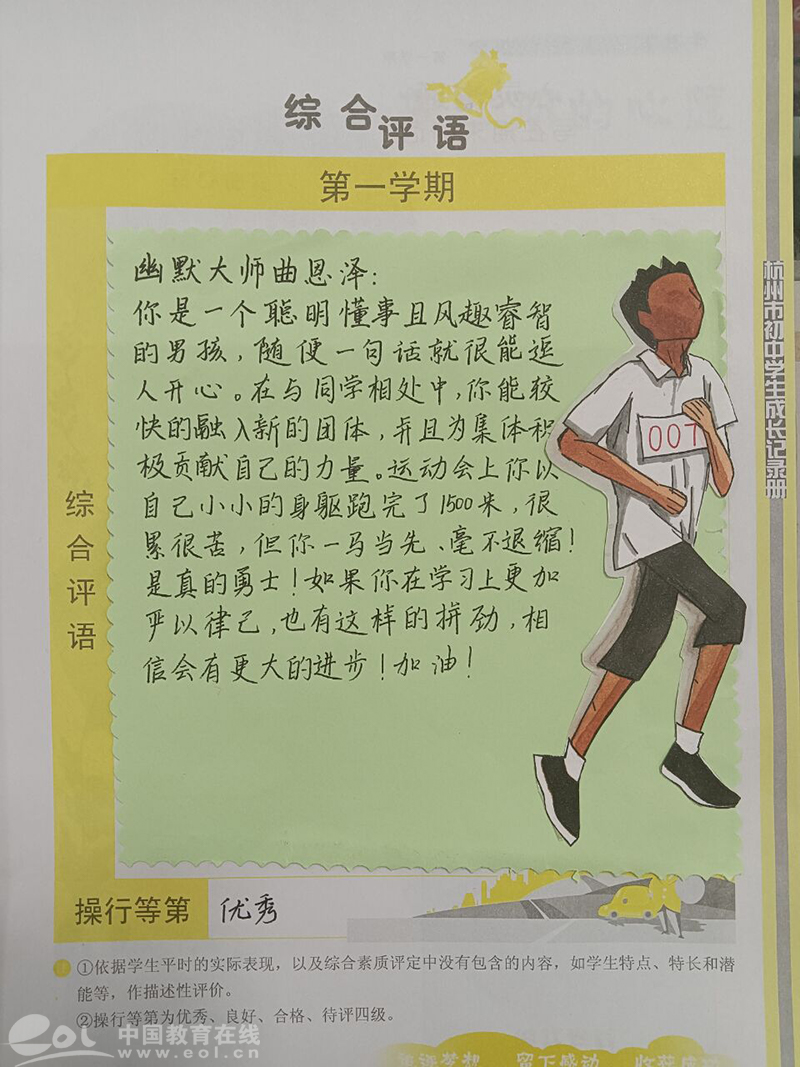 综合评语
第一学期
综合评语
幽默大师曲恩泽：
你是一个聪明懂事且风趣睿智
的男孩，随便一句话就很能逗
人开心。在与同学相处中，你能较
快的融入新的团体，并且为集体积
极贡献自己的力量。运动会上你以
自己小小的身躯跑完了1500米，很
累很苦，但你一马当先、毫不退缩！
是真的勇士！如果你在学习上更加
严以律己，也有这样的拼劲，相
信会有更大的进步！加油！
007
杭州市初中学生成长记录册
操行等第 优秀
注 ①依据学生平时的实际表现，以及综合素质评定中没有包含的内容，如学生特点、特长和潜
能等，作描述性评价。
②操行等第为优秀、良好、合格、待评四级。
eol 中国教育在线
www.eol.cn
留下感动